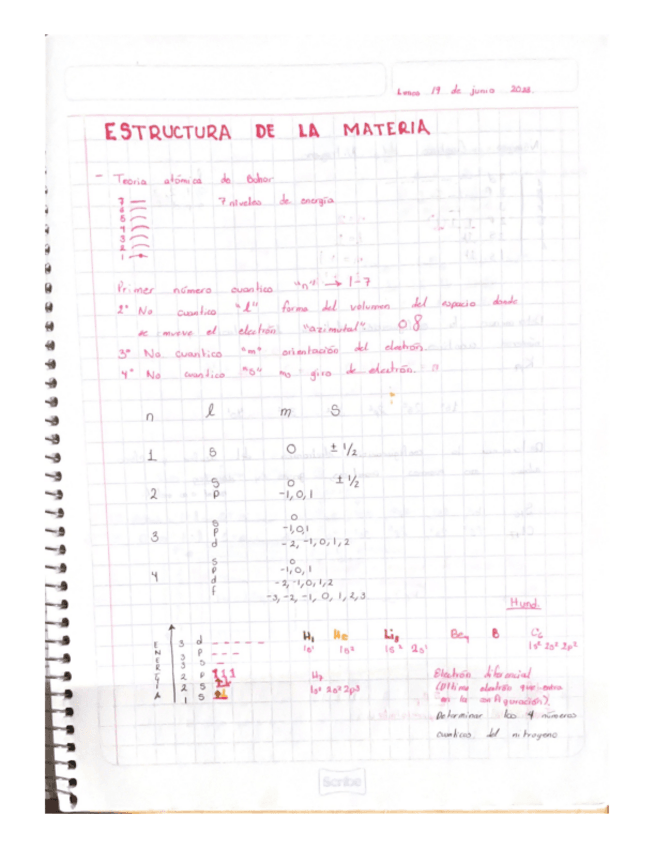 Lunes 19 de junio 2023.
ESTRUCTURA DE LA MATERIA
- Teoría atómica de Bohor
7 7 niveles de energía
6
5
4
3
2
1
Primer número cuantico "n" → 1-7
2° No cuantico "l" forma del volumen del espacio donde
se mueve el electrón "azimutal".
3° No cuantico "m" orientación del electrón
4° No cuantico "s" no giro de electrón
n l m S
1 s 0 ± 1/2
2 s 0 ± 1/2
p -1, 0, 1
3 s 0
p -1, 0, 1
d -2, -1, 0, 1, 2
4 s 0
p -1, 0, 1
d -2, -1, 0, 1, 2
f -3, -2, -1, 0, 1, 2, 3
Hund.
ENERGÍA
3 d
3 p
3 s
2 p
2 s
1 s
H₁ He Li₃ Be₄ B C₆
1s¹ 1s² 1s² 2s¹ 1s² 2s² 2p²
N₇
1s² 2s² 2p³
Electrón diferencial
(Ultimo electrón que entra
en la configuración).
Determinar los 4 números
cuanticos del nitrogeno
Scribe